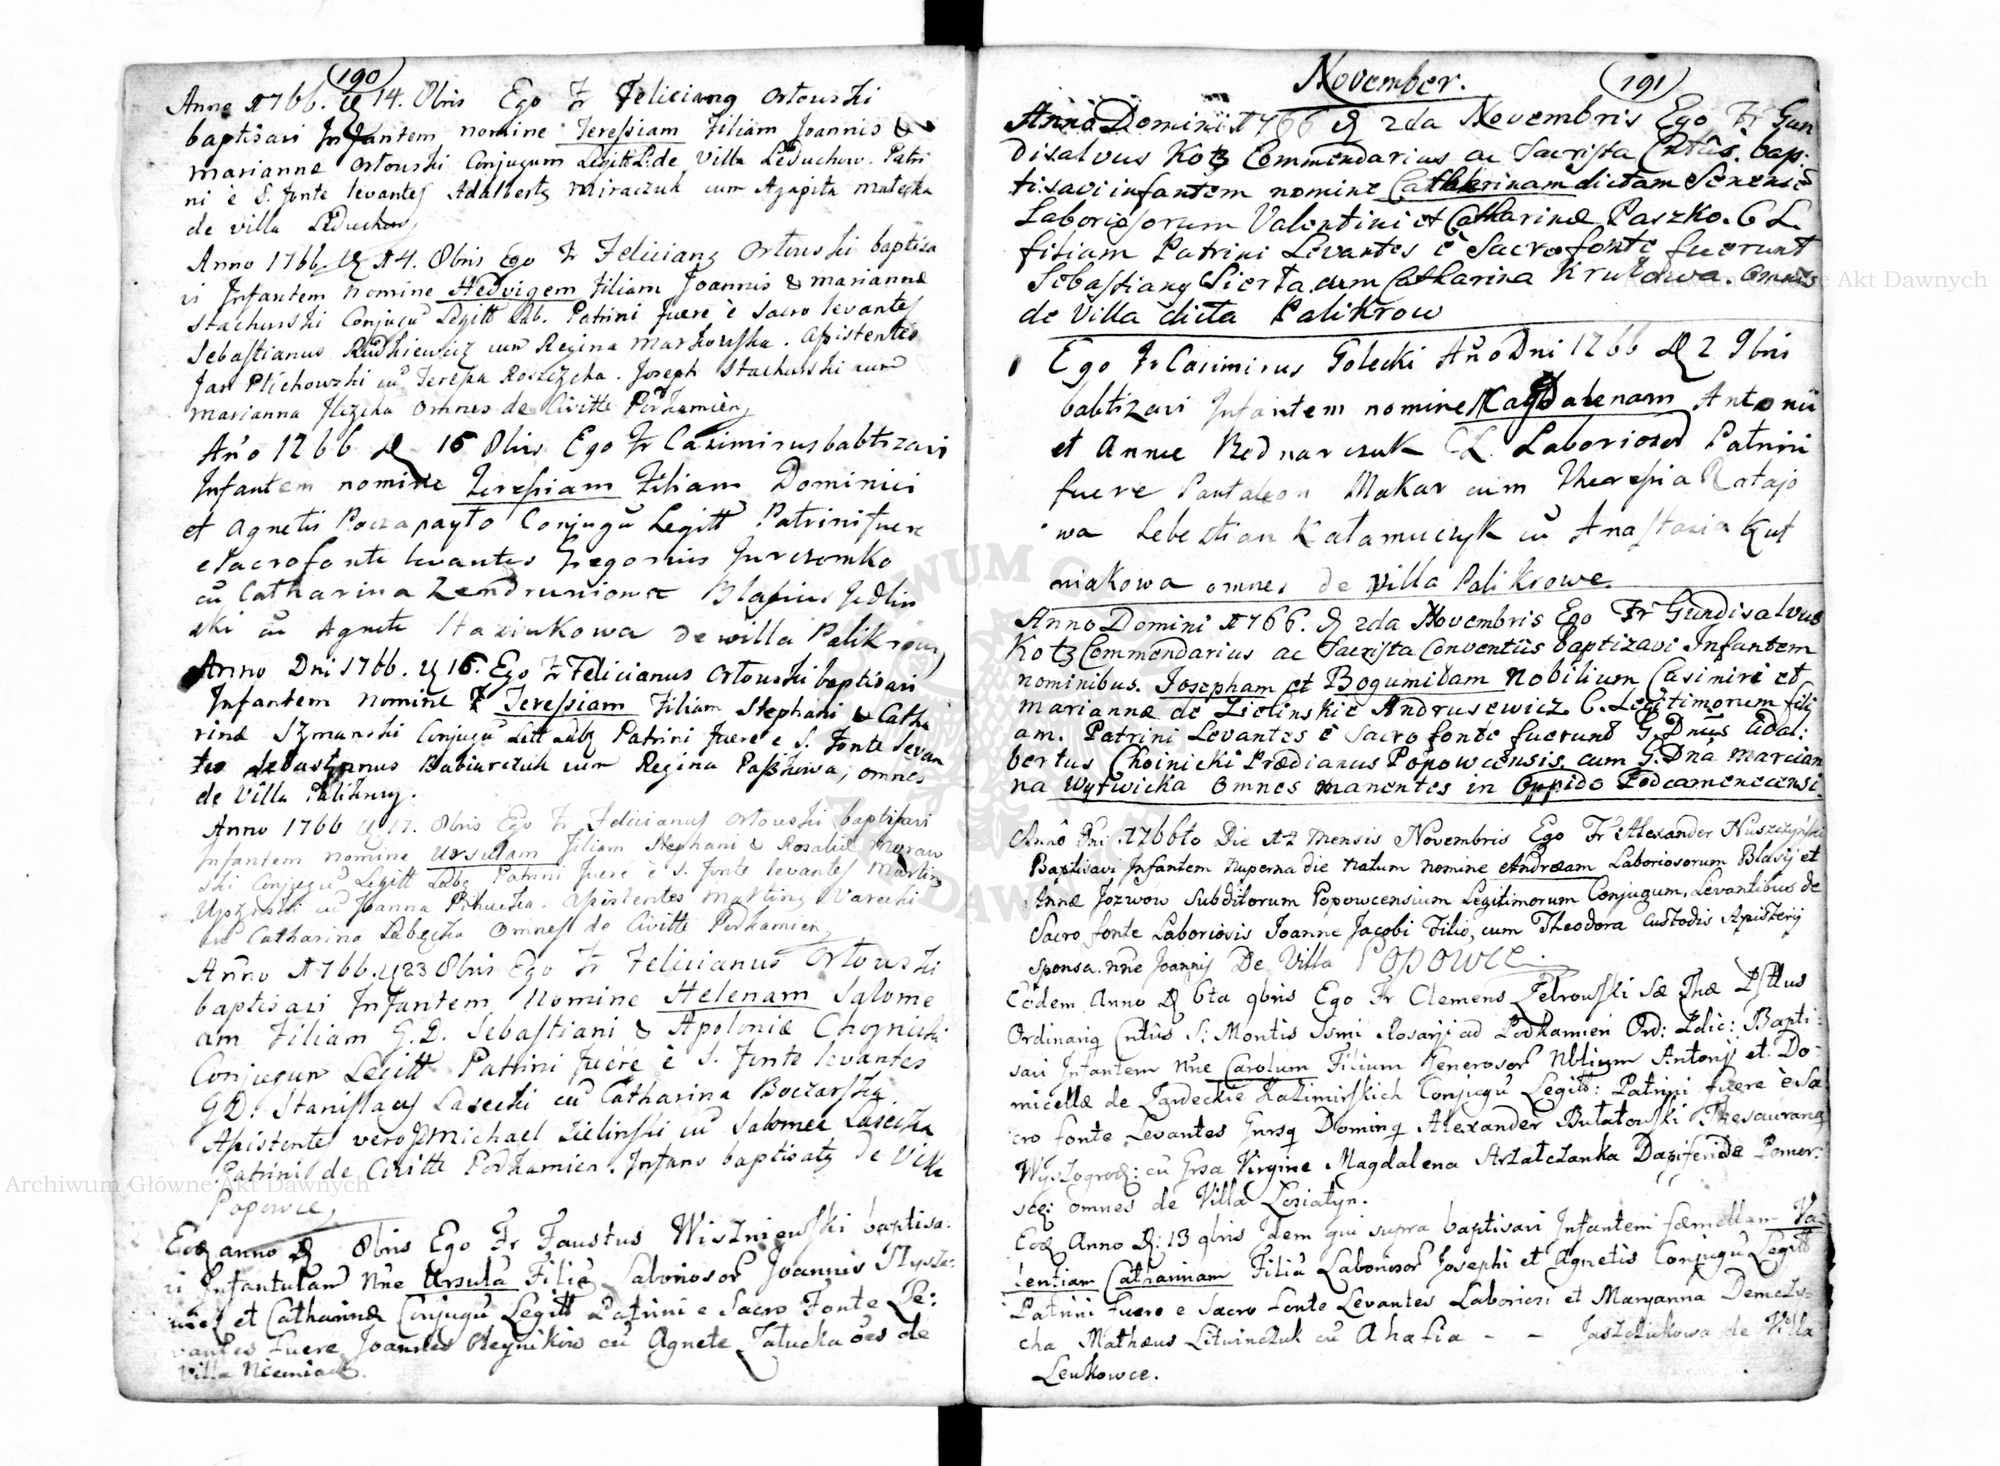 190
Anno 1766. d 14. 8bris Ego Fr Felicianq Ortowski
baptisavi Infantem nomine Teressiam Filiam Joannis &
Marianne Ortowski Conjugum Legitt L: de Villa Leduchow. Patri
ni è S. fonte levantes Adalbertq Miraczuk cum Agapita
de villa Leduchow
Anno 1766 d 14. 8bris Ego Fr Felicianq Ortowski baptisa
vi Infantem nomine Hedvigem Filiam Joannis & Mariannæ
Stachurski Conjugu Legitt Lab. Patrini fuere è Sacro levantes
Sebastianus Rudkiewicz cum Regina Markowska. Assistentes
Jan Plichowski cu Teressa . Joseph Stachurski cum
Marianna omnes de Civitte Podkamien
Año 1766 d 16 8bris Ego Fr Casimirus babtizavi
Infantem nomine Teressiam Filiam Dominici
et Agnetis Poczapayto Conjugu Legitt Patrini fuere
e Sacro fonte levantes Gregorius Jurczenko
cu Catharina Blasius Judlin
ski cu Agnete Staziukowa de willa Palikrow
Anno Dni 1766. d 16. Ego Fr Felicianus Ortowski baptisavi
Infantem nomine Teressiam Filiam Stephani & Catha
rinæ Szmanski Conjugu Leitt Labq Patrini fuere e S. Fonte levan
tes Sebastyanus Babiarczuk cum Regina Paszkowa, omnes
de Villa Palikrowy.
Anno 1766 d 17. 8bris Ego Fr Felicianus Ortowski baptisavi
Infantem nomine Ursulam Filiam Stephani & Rosaliæ Muraw
ski Conjugu Legitt Labq Patrini fuere è S. fonte levantes Martin
cu Joanna . Assistentes Martinq Varecki
cu Catharina Labęcka omnes de Civitte Podkamien
Anno 1766. d 23 8bris Ego Fr Felicianus Ortowski
baptisavi Infantem Nomine Helenam Salome
am Filiam G. D. Sebastiani & Apoloniæ Choynicki
Conjugum Legitt Patrini fuere è S. fonte levantes
G D: Stanislaus Lasecki cu Catharina Boczarska.
Assistentes vero Michael Zielinski cu Salomea Lasecka
Patrini de Civitte Podkamien. Infans baptisatq de Villa
Popowce,
Eod anno d 8bris Ego Fr Faustus Wiszniewski baptisa:
vi Infantulam nne Ursula Filia Laborioso℞ Joannis
et Catharinæ Conjugu Legitt Patrini e Sacro Fonte Le:
vantes fuere Joannes Oleynikow cu Agnete Zatucka oes de
Villa Niemiacz.
November. 191
Anno Domini 1766 d 2da Novembris Ego Fr Gun
disalvus Kotz Commendarius ac Sacrista Cntûs. bap:
tisavi infantem nomine Catherinam dictam Senensẽ
Laboriosorum Valentini et Catharinæ Paszko. C L.
filiam Patrini Levantes è Sacro fonte fuerunt
Sebastianq Sierta cum Catharina Krukowa. omnes
de Villa dicta Palikrow
Ego Fr Casimirus Golecki Año Dni 1766 d 2 9bris
babtizavi Infantem nomine Magdalenam Antonii
et Annæ Bednarczuk C L. Laboriosor Patrini
fuere Pantaleon Makar cum Theressia Ratajo
wa Sebestian Katamuczyk cu Anastazia Kut
niakowa omnes de villa Palikrowe.
Anno Domini 1766. d 2da Novembris Ego Fr Gundisalvus
Kotz Commendarius ac Sacrista Conventûs baptizavi Infantem
nominibus. Josepham et Bogumilam Nobilium Casimiri et
Mariannæ de Zielinskie Andrusewicz C. Legitimorum fili
am. Patrini Levantes è Sacro fonte fuerunt G. Dnus Adal:
bertus Choinicki Prædianus Popowcensis cum G. Dna Marcian
na Wytwicka Omnes manentes in Oppido Podcamenecensi.
Anno Dni 1766to Die 2 Mensis Novembris Ego Fr Alexander Nuszczynski
Baptisavi Infantem nuperna die natum nomine Andræam Laboriosorum Blasij et
Annæ Jozwow Subditorum Popowcensium Legitimorum Conjugum, Levantibus de
Sacro fonte Laboriosis Joanne Jacobi Filio, cum Theodora Custodis Apisterij
Sponsa nne Joannis De Villa POPOWCE.
Eodem Anno d 6ta 9bris Ego Fr Clemens Zelrowski Sæ Thæ
Ordinariq Cntûs S: Montis Ssmi Rosarij ad Podkamien Ord: Pdic: Bapti:
savi Infantem Nne Carolum Filium Generosor Nblium Antonij et Do-
micellæ de Zardeckie Kazimirskich Conjugu Legitt: Patrini fuere è Sa
cro fonte Levantes Gnrsq Dominq Alexander Bułatowski Thesaurariq
Wyszogrod: cu Grsa Virgine Magdalena Arłatczanka Dapiferida Pomer:
omnes de Villa Loziatyn.
Eod Anno d: 13 9bris Idem qui supra baptisavi Infantem fœmellam Va-
lentiam Catharinam Filiã Laborioso℞ Josephi et Agnetis Conjugu Legitt
Patrini fuere e Sacro fonte Levantes Laboriosi et Maryanna Demets-
cha Mathæus Litwinczuk cu Ahafia - - Jaszczukowa de Villa
Leukowce.
Archiwum Główne Akt Dawnych
Archiwum Główne Akt Dawnych